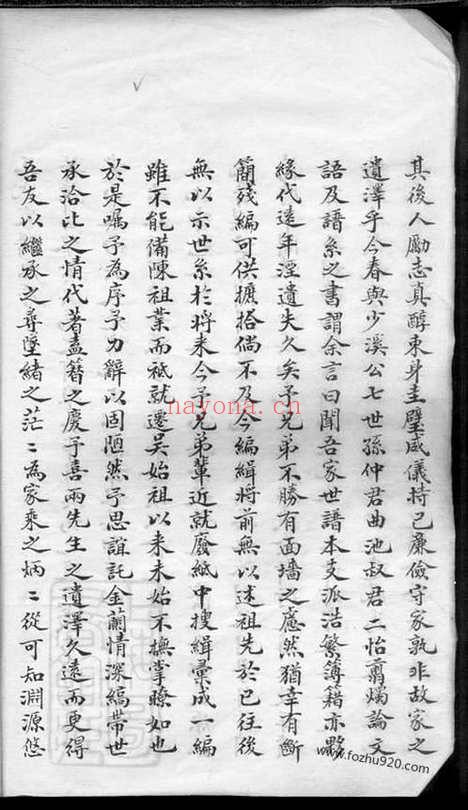 其後人勵志真醇束身圭璧咸儀持己廉儉守家孰非故家之
遺澤乎今春與少溪公七世孫仲君曲池叔君二怡翦燭論文
語及譜系之書謂余言曰聞吾家世譜本支派浩繁簿籍亦夥
緣代遠年湮遺失久矣予兄弟不勝有面墻之慮然猶幸有斷
簡殘編可供摭拾倘不及今編緝將前無以述祖先於已往後
無以示世系於將来今予兄弟輩近就廢紙中搜緝彙成一編
雖不能備陳祖業而祗就遷吳始祖以来未始不撫掌瞭如也
於是囑予為序予力辭以固陋然予思誼託金蘭情深縞帶世
承洽比之情代著盍簪之慶予喜兩先生之遺澤久遠而更得
吾友以繼承之尋墜緒之茫〻為家乘之炳〻從可知淵源悠
nayona.cn
www.fozhu920.com